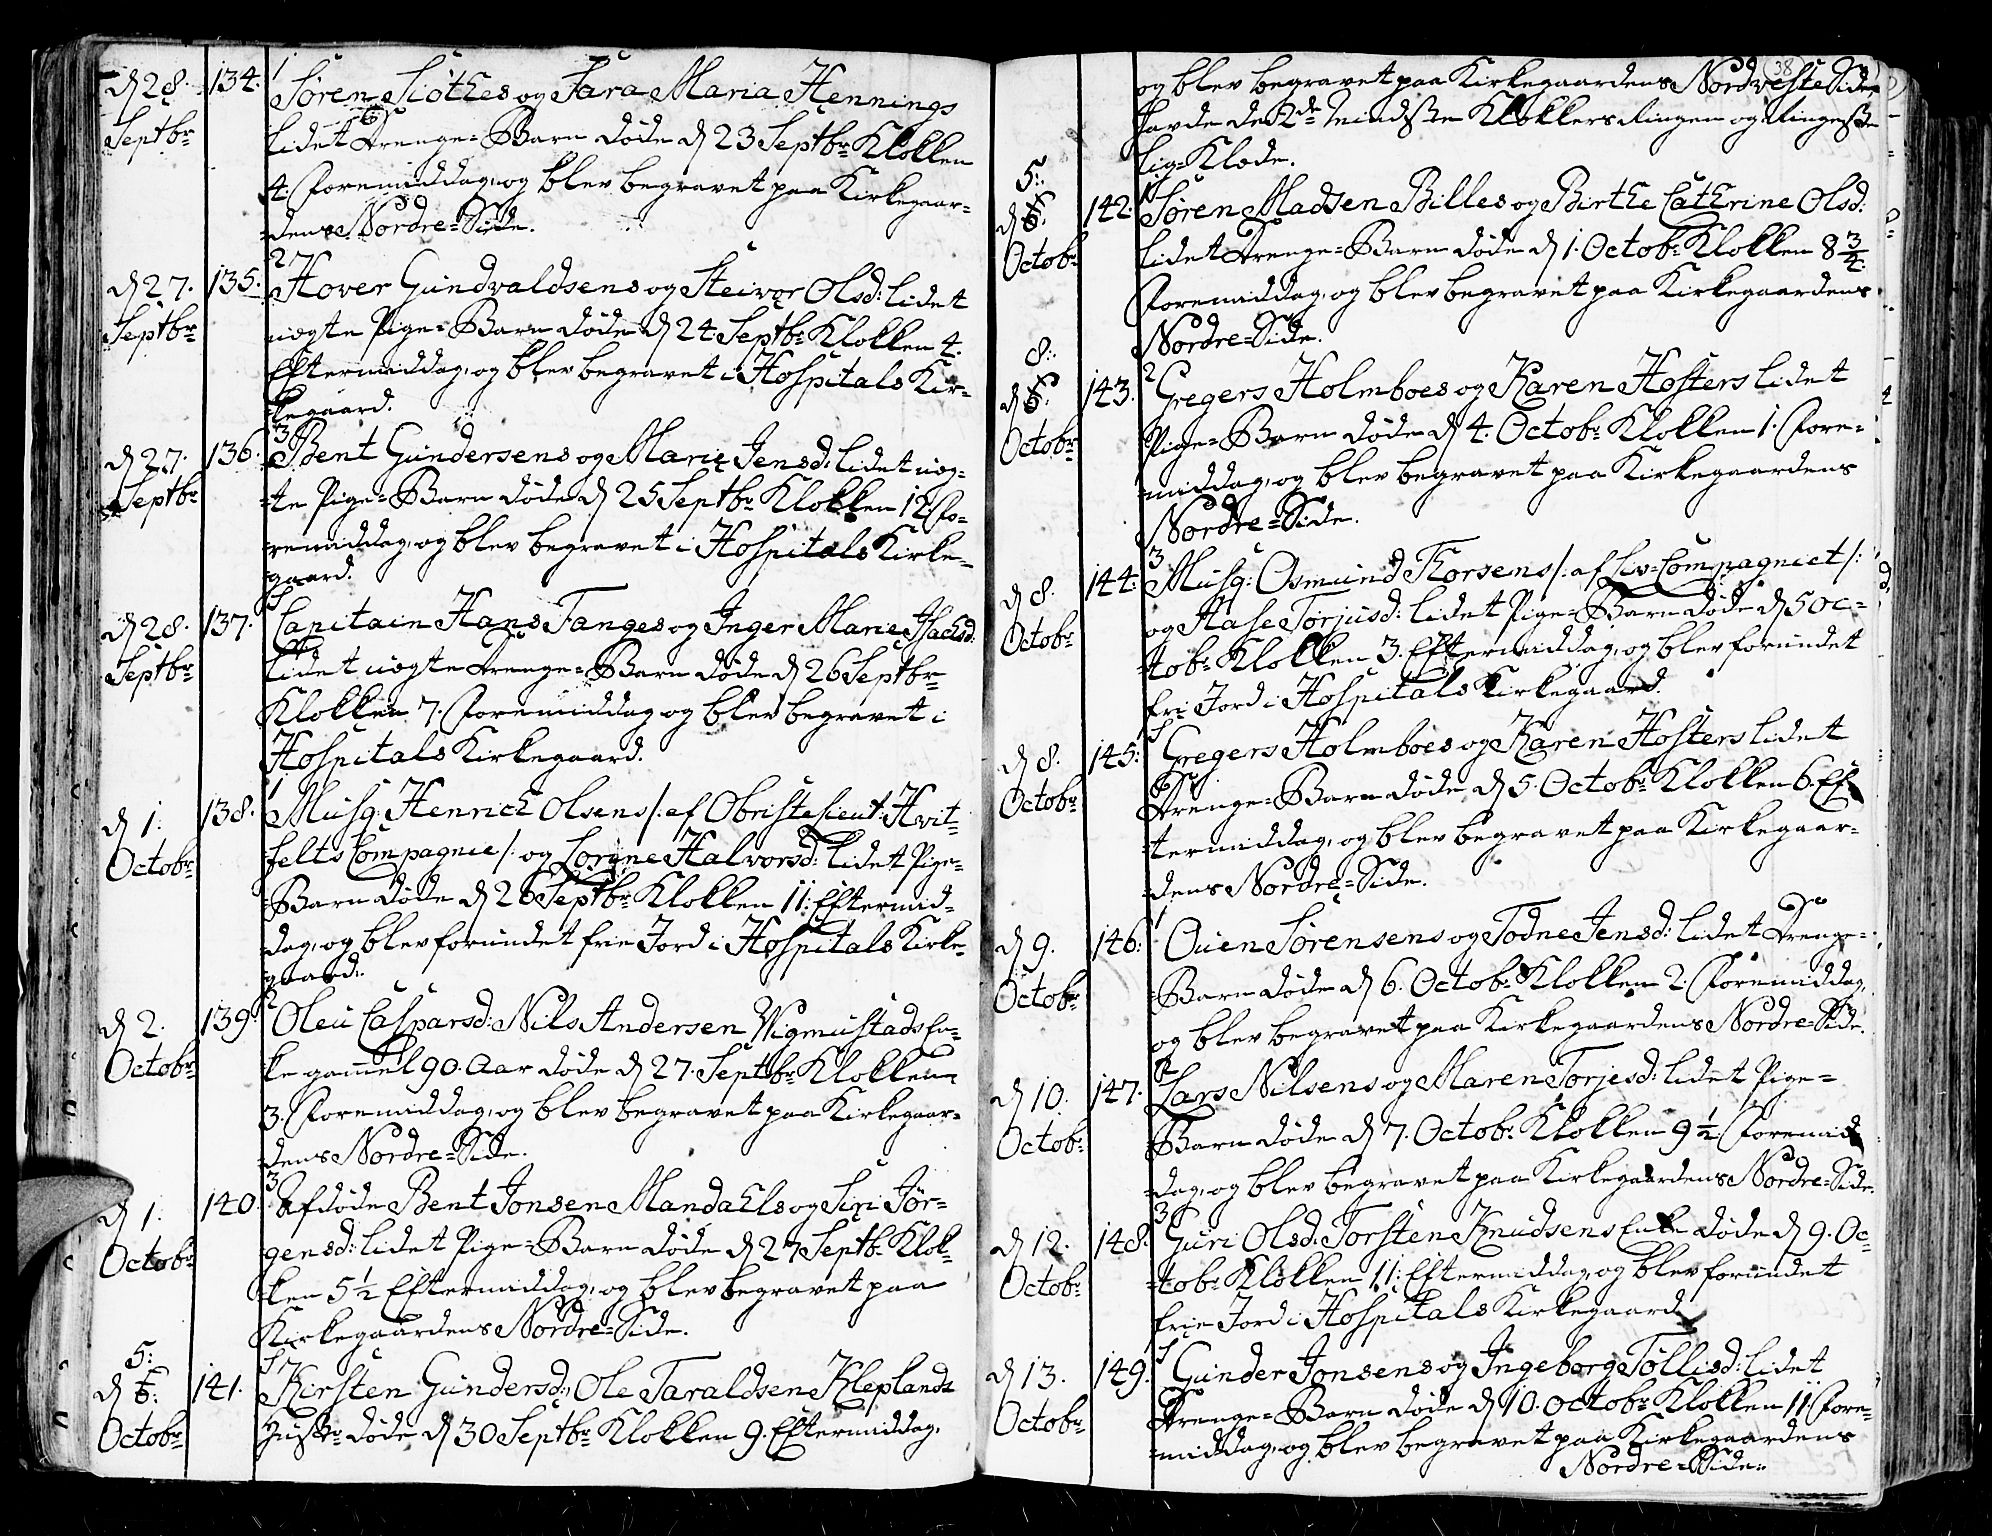 d 28. Septbr 134. 1
Søren Siöthes og Sara Maria Hennings
lidet Drenge=Barn døde d 23 Septbr Klokken
4. Foremiddag, og blev begravet paa Kirkegaar=
=dens Nordre=Side.
d 27. Septbr 135. 2
Hover Gundvaldsens og Steivor Olsd: lidet
uægte Pige=Barn døde d 24 Septbr Klokken 4.
Eftermiddag, og blev begravet i Hospitals Kir=
=kegaard.
d 27. Septbr 136. 3
Bent Gundersens og Marie Jensd: lidet uæg=
=te Pige=Barn døde d 25 Septbr Klokken 12. Fo=
=remiddag, og blev begravet i Hospitals Kirke=
=gaard.
d 28. Septbr 137.
Capitain Hans Fanges og Inger Marie Isachsd:
lidet uægte Drenge=Barn døde d 26 Septbr
Klokken 7. Foremiddag og blev begravet i
Hospitals Kirkegaard.
d 1. Octobr 138. 1
Musq: Henrich Olsens /: af Obristelieut: Hvit=
felts Compagnie /: og Lorene Halvorsd: lidet Pige=
=Barn døde d 26 Septbr Klokken 11. Eftermid=
=dag, og blev forundet frie Jord i Hospitals Kirke=
gaard.
d 2. Octobr 139. 2
Oleu Caspars: Nils Andersen Wigmustads En=
ke gammel 90. Aar døde d 27. Septbr Klokken
3. Foremiddag, og blev begravet paa Kirkegaar=
dens Nordre=Side.
d 1. Octobr 140. 3
Afdøde Bent Jonsen Mandahls og Siri Jør=
gensd: lidet Pige=Barn døde d 27 Septb. Klok=
=ken 5½ Eftermiddag, og blev begravet paa
Kirkegaardens Nordre=Side.
5: d 6. Octobr 141.
Kirsten Gundersd: Ole Taraldsen Kleplands
Hustr døde d 30 Septbr Klokken 9. Eftermiddag,
38
og blev begravet paa Kirkegaardens Nordveste Side,
havde de 2de mindste Klokkers Ringen og Ringeste
Lig=Klæde.
5: d 6. Octobr 142. 1
Søren Madsen Billes og Birthe Cathrine Olsd:
lidet Drenge=Barn døde d 1. Octobr Klokken 8¾.
Foremiddag, og blev begravet paa Kirkegaardens
Nordre=Side.
8: d 6. Octobr 143. 2
Gregers Holmboes og Karen Hosters lidet
Pige=Barn døde d 4. Octobr Klokken 1. Fore=
=middag, og blev begravet paa Kirkegaardens
Nordre=Side.
d 8. Octobr 144. 3
Musq: Osmund Thorsens /: af Liv=Compagniet /:
og Aase Torjusd: lidet Pige=Barn døde d 5 Oc=
=tobr Klokken 3. Eftermiddag, og blev forundet
fri Jord i Hospitals Kirkegaard.
d 8. Octobr 145.
Gregers Holmboes og Karen Hosters lidet
Drenge=Barn døde d 5. Octobr Klokken 6. Ef=
=termiddag, og blev begravet paa Kirkegaar=
=dens Nordre=Side.
d 9. Octobr 146. 1
Ouen Sørensens og Todne Jensd: lidet Drenge=
=Barn døde d 6. Octobr Klokken 2. Foremiddag,
og blev begravet paa Kirkegaardens Nordre=Side.
d 10. Octobr 147. 2
Lars Nilsens og Maren Torjesd: lidet Pige=
Barn døde d 7. Octobr Klokken 9½. Foremid
=dag, og blev begravet paa Kirkegaardens Nordre=Side.
d 12. Octobr 148. 3
Guri Olsd: Torsten Knudsens Enke døde d 9. Oc=
=tobr Klokken 11. Eftermiddag, og blev forundet
frie Jord i Hospitals Kirkegaard
d 13. Octobr 149.
Gunder Jonsens og Ingeborg Tøllisd: lidet
Drenge=Barn døde d 10. Octobr Klokken 11. Fore=
=middag, og blev begravet paa Kirkegaardens
Nordre=Side.